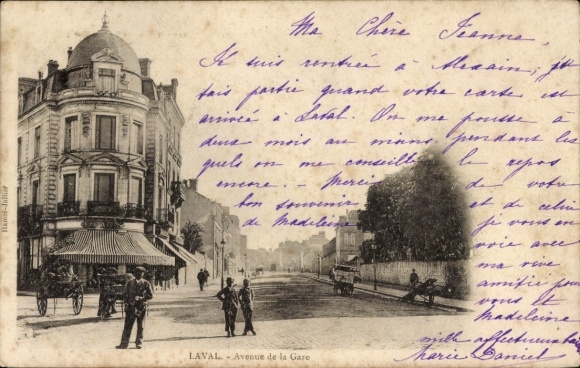 Ma Chère Jeanne,
Je suis rentrée à Alexain, j'é
tais partie quand votre carte est
arrivée à Laval. On me pousse à
deux mois au moins, pendant les
quels on me conseille le repos
encore. - Merci de votre
bon souvenir et de celui
de Madeleine je vous en
voie avec
ma vive
amitié pour
vous et
Madeleine
mille affectueux
Marie Daniel
Hamel-Jallier
LAVAL. - Avenue de la Gare